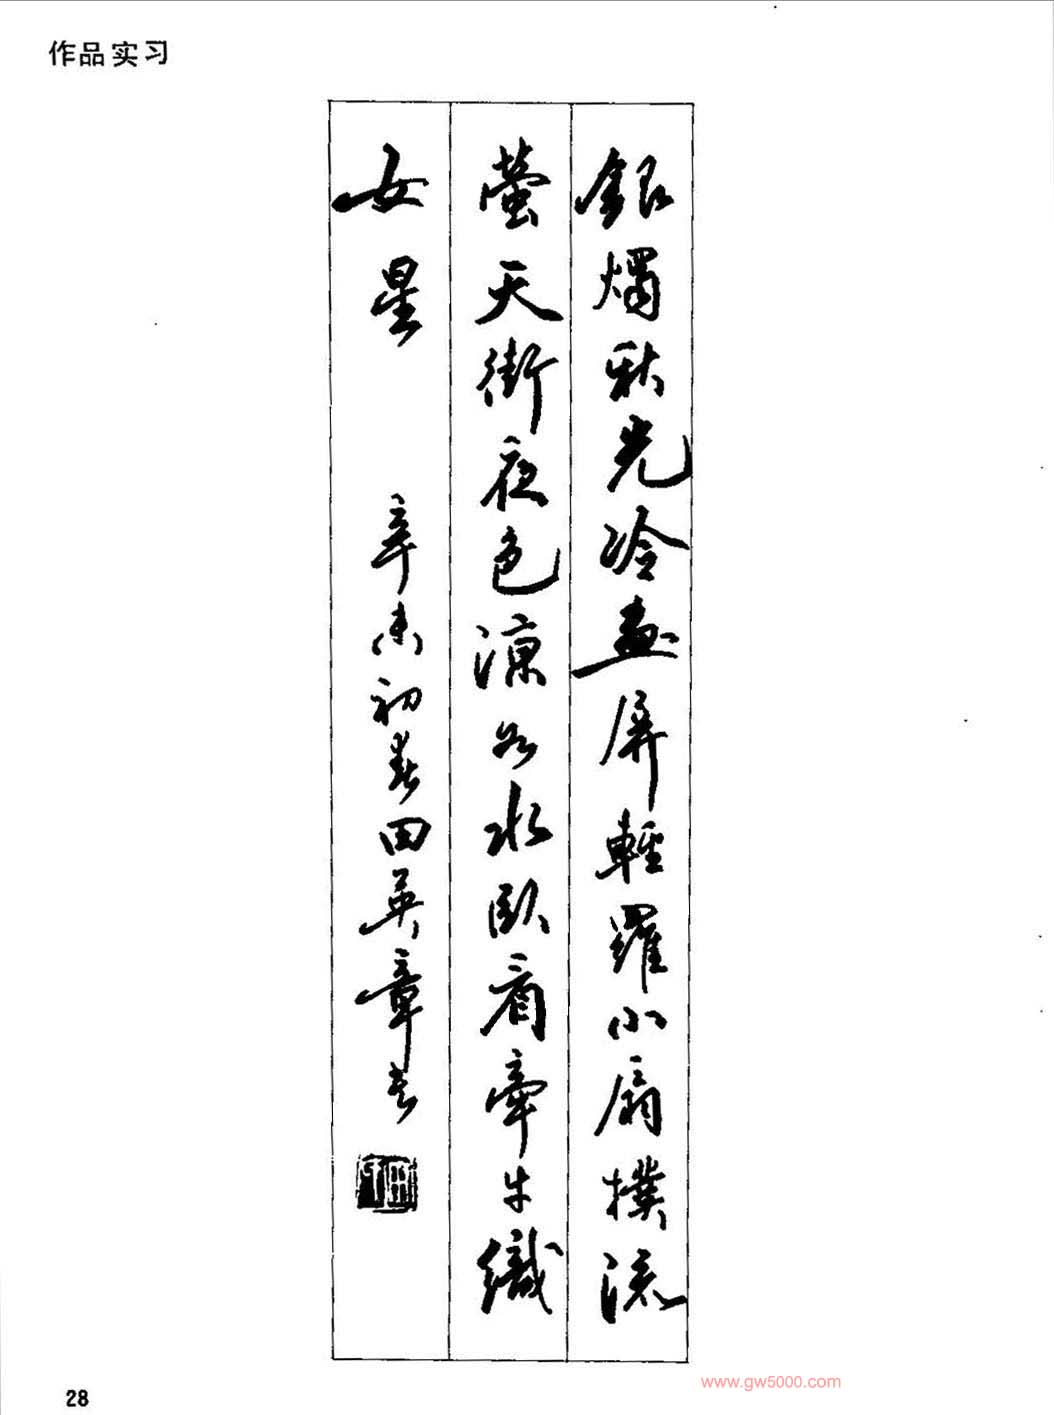 作品实习
銀燭秋光冷畫屏輕羅小扇撲流
螢天街夜色涼如水臥看牽牛織
女星 辛未初春田英章书
www.gw5000.com
28